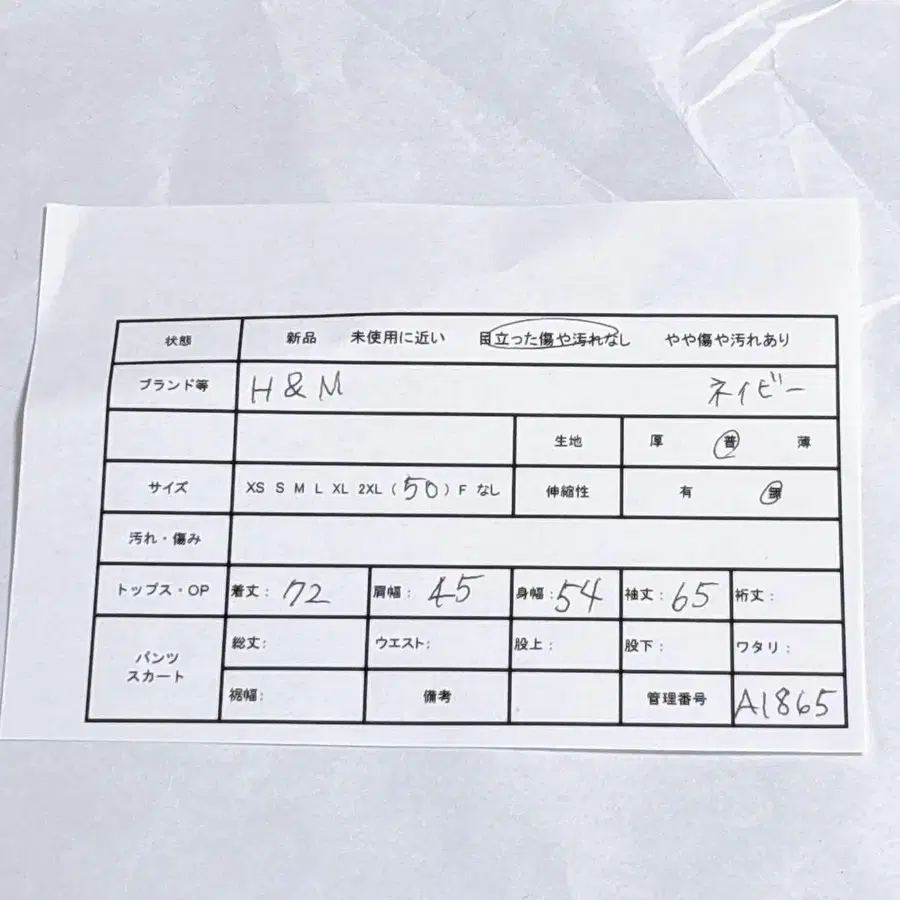 状態 新品 未使用に近い 目立った傷や汚れなし やや傷や汚れあり
ブランド等 H&M ネイビー
生地 厚 普 薄
サイズ XS S M L XL 2XL (50) F なし 伸縮性 有 無
汚れ・傷み
トップス・OP 着丈: 72 肩幅: 45 身幅: 54 袖丈: 65 裄丈:
パンツ スカート 総丈: ウエスト: 股上: 股下: ワタリ:
裾幅: 備考 管理番号 A1865